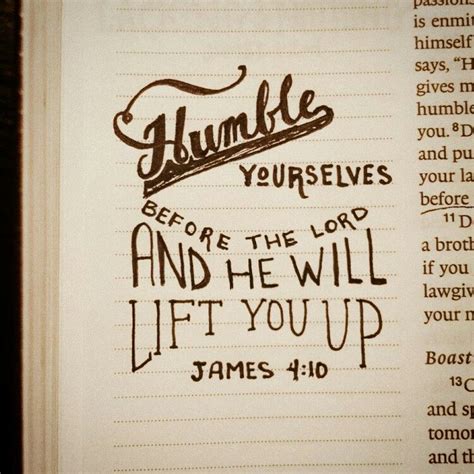 Humble
YOURSELVES
BEFORE THE LORD
AND HE WILL
LIFT YOU UP
JAMES 4:10
is enmit
himself
says, "H
gives m
humble
you. 8D
and pu
your la
before
11D
a broth
if you
lawgiv
your n
Boast
13C
and sp
tomor
and th